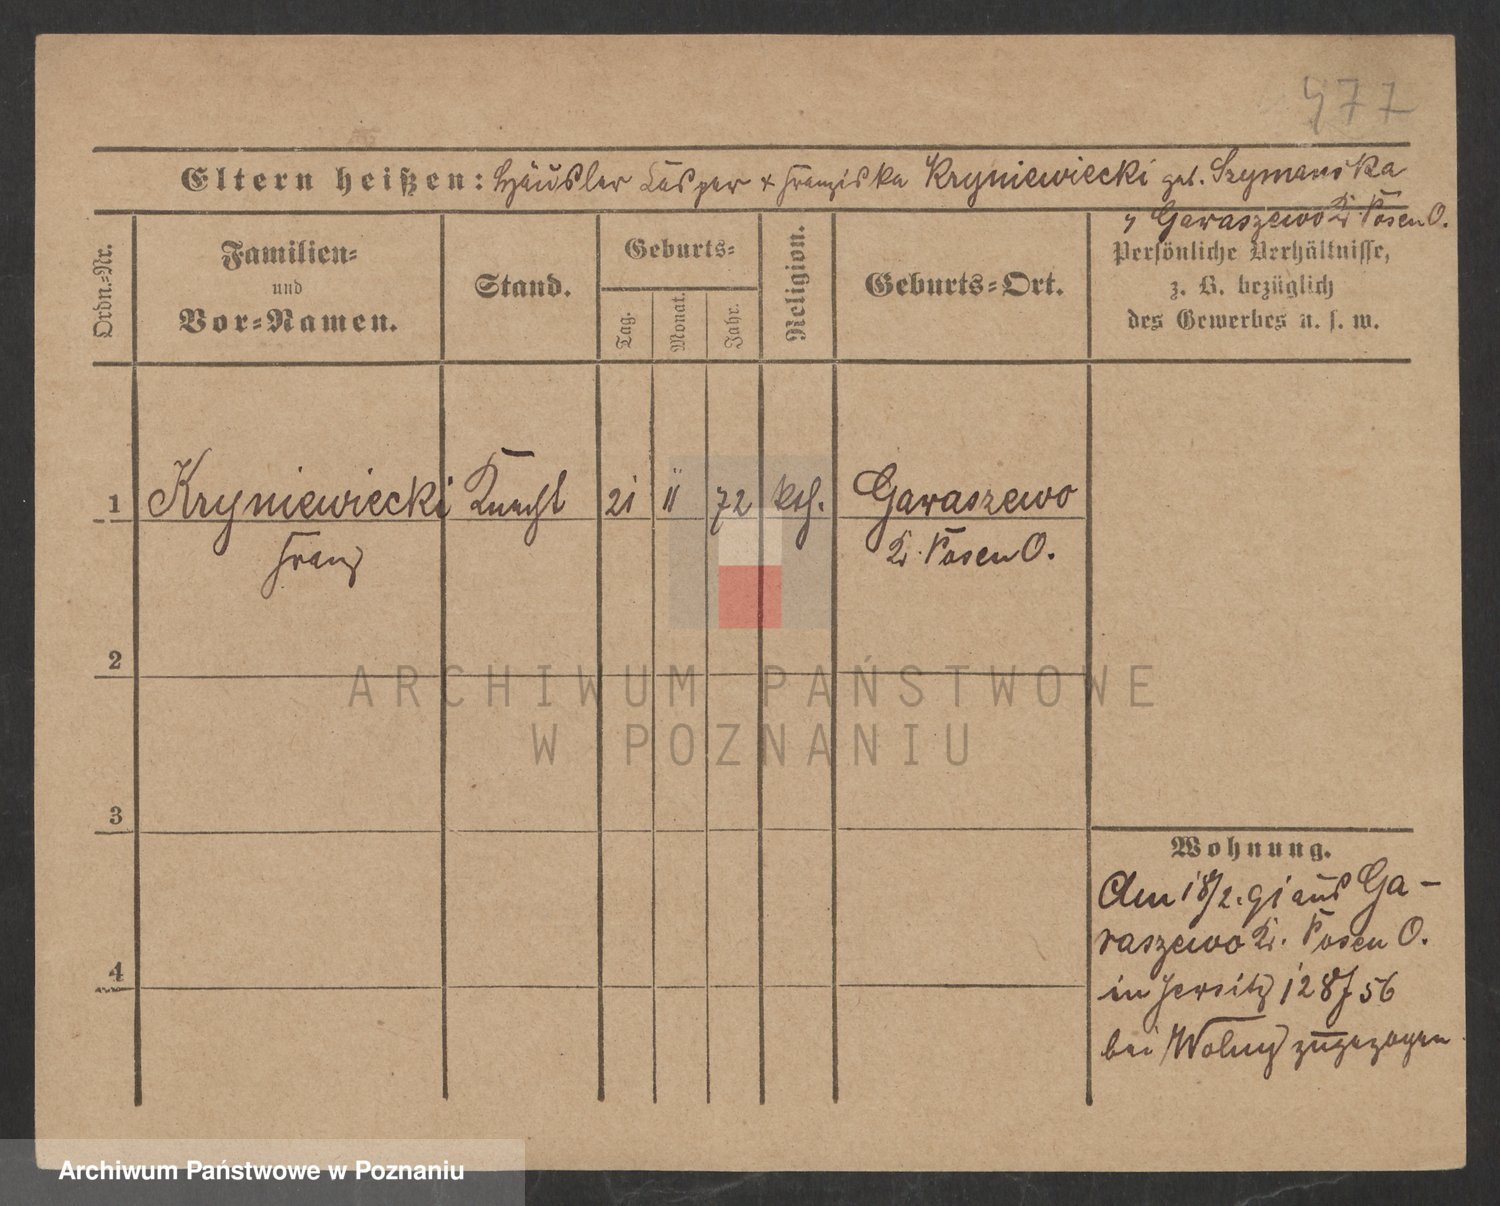 477
Eltern heißen: Häusler Casper & Franziska Kryniewiecki geb. Szymanska
Garaszewo Kr. Posen O.
Ordn.-Nr.
Familien-
und
Vor-Namen.
Stand.
Geburts-
Tag.
Monat.
Jahr.
Religion.
Geburts-Ort.
Persönliche Verhältnisse,
z. B. bezüglich
des Gewerbes u. s. w.
1 Kryniewiecki Knecht 21 11 72 kth. Garaszewo
Franz Kr. Posen O.
2
3
4
Wohnung.
Am 18/2. 91 aus Ga-
raszewo Kr. Posen O.
in Jersitz 128/56
bei Wolny zugezogen
ARCHIWUM PAŃSTWOWE
W POZNANIU
Archiwum Państwowe w Poznaniu